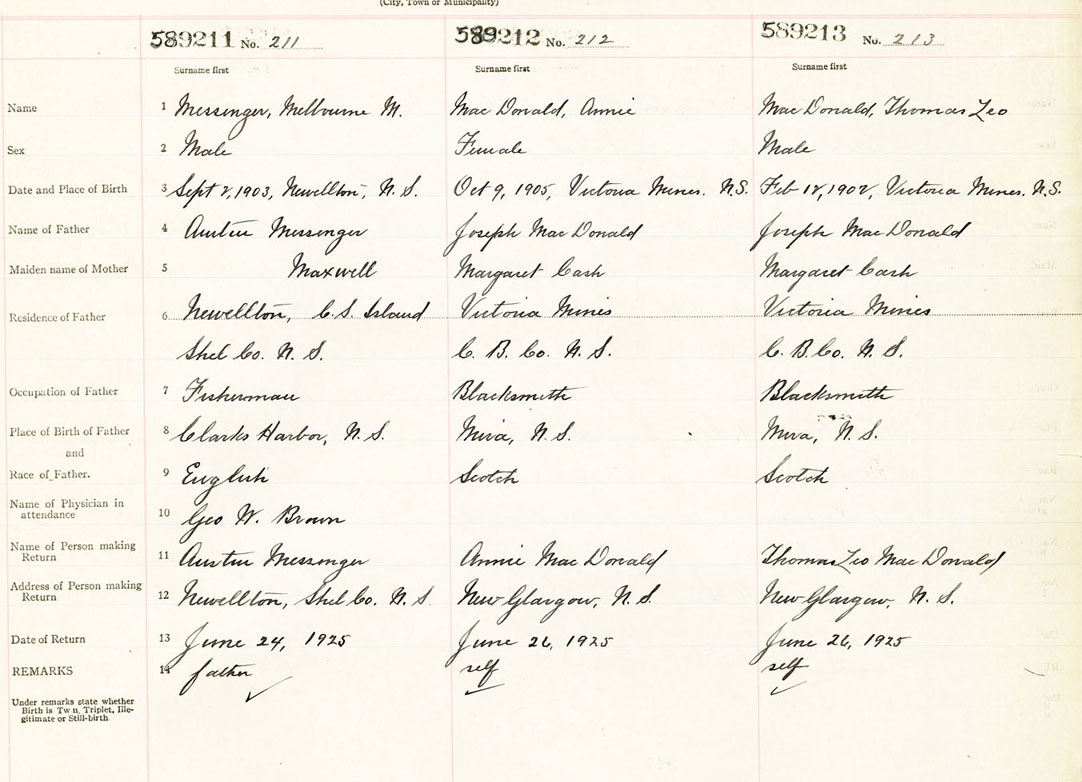 (City, Town or Municipality)
589211 No. 211 589212 No. 212 589213 No. 213
Surname first Surname first Surname first
Name 1 Messenger, Melbourne M. Mac Donald, Annie Mac Donald, Thomas Leo
Sex 2 Male Female Male
Date and Place of Birth 3 Sept 2, 1903, Newellton, N.S. Oct 9, 1905, Victoria Mines. N.S. Feb 12, 1902, Victoria Mines. N.S.
Name of Father 4 Austin Messenger Joseph Mac Donald Joseph Mac Donald
Maiden name of Mother 5 Maxwell Margaret Cash Margaret Cash
Residence of Father 6 Newellton, C.S. Island Victoria Mines Victoria Mines
Shel Co. N.S. C. B. Co. N.S. C. B. Co. N.S.
Occupation of Father 7 Fisherman Blacksmith Blacksmith
Place of Birth of Father 8 Clarks Harbor, N.S. Mira, N.S. Mira, N.S.
and
Race of Father. 9 English Scotch Scotch
Name of Physician in
attendance 10 Geo W. Brown
Name of Person making
Return 11 Austin Messenger Annie Mac Donald Thomas Leo Mac Donald
Address of Person making
Return 12 Newellton, Shel Co. N.S. New Glasgow, N.S. New Glasgow, N.S.
Date of Return 13 June 24, 1925 June 26, 1925 June 26, 1925
REMARKS 14 father self self
Under remarks state whether
Birth is Twn, Triplet, Ille-
gitimate or Still-birth